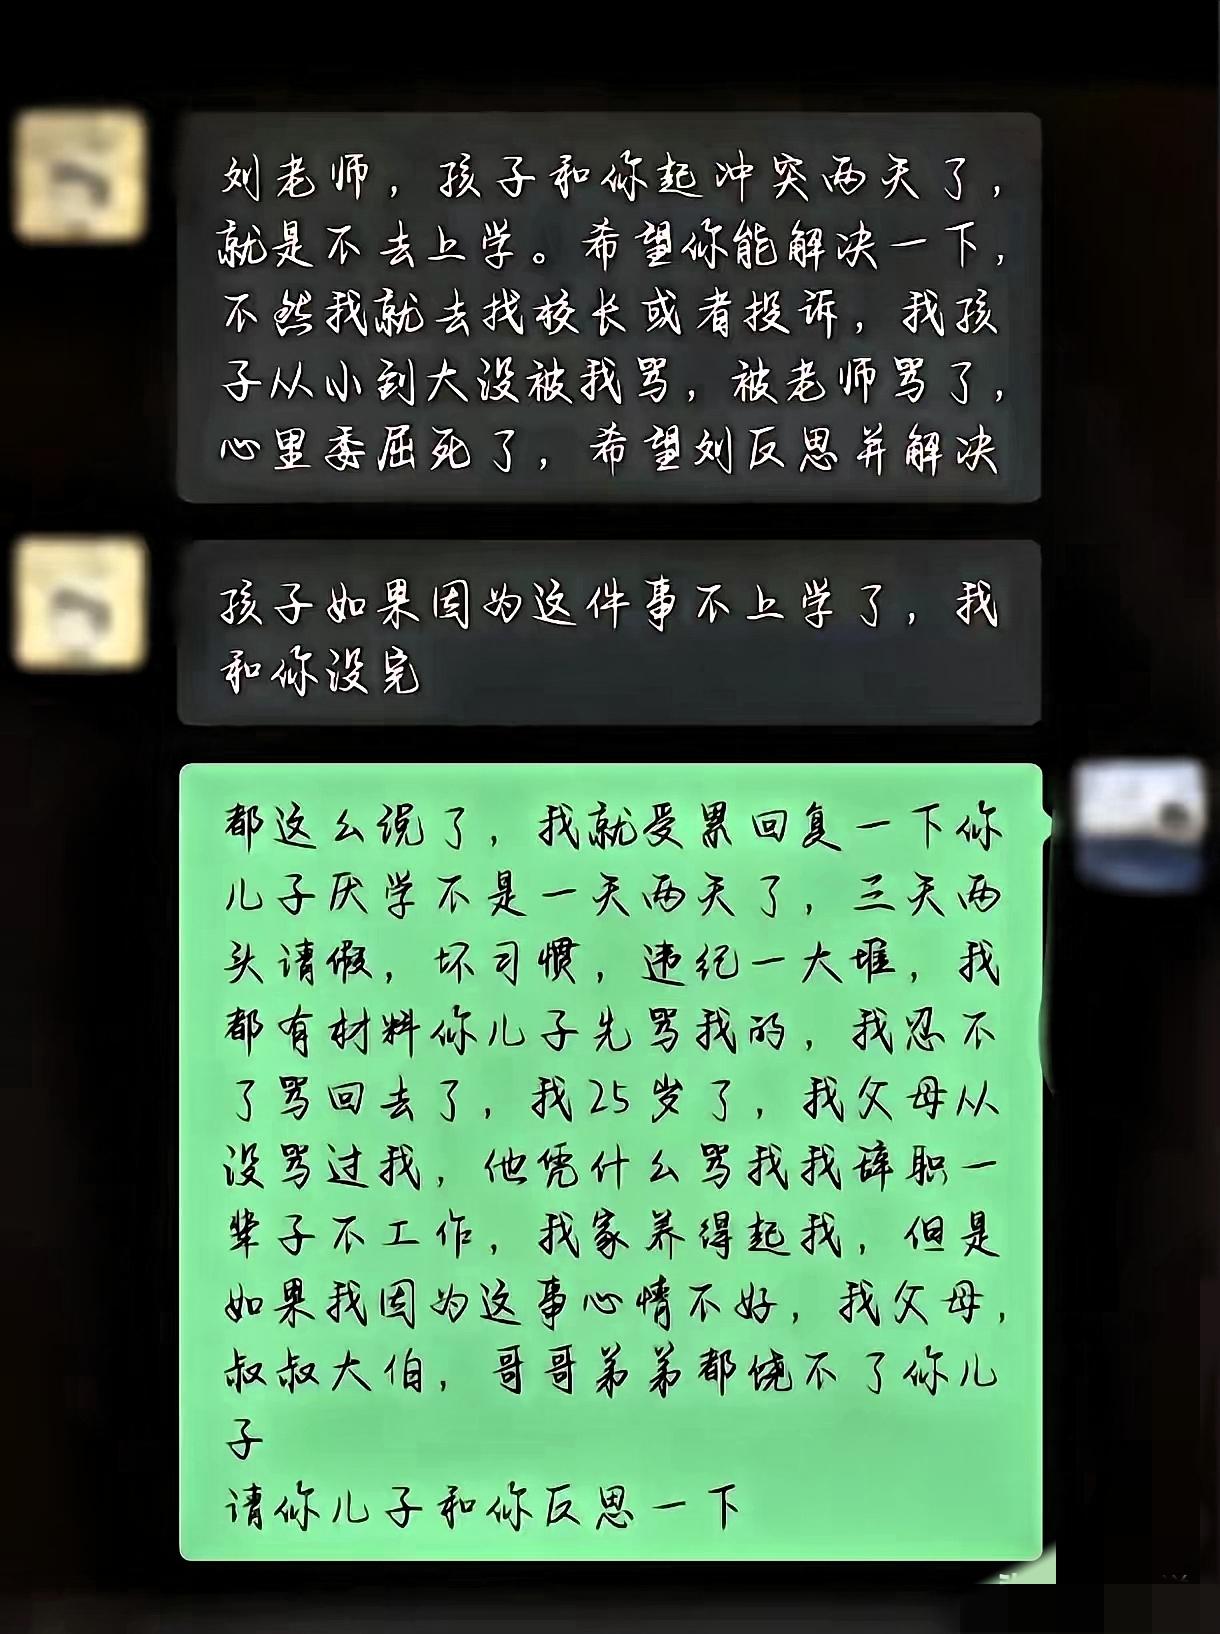 刘老师，孩子和你起冲突两天了，
就是不去上学。希望你能解决一下，
不然我就去找校长或者投诉，我孩
子从小到大没被我骂，被老师骂了，
心里委屈死了，希望刘反思并解决
孩子如果因为这件事不上学了，我
和你没完
都这么说了，我就受累回复一下你
儿子厌学不是一天两天了，三天两
头请假，坏习惯，违纪一大堆，我
都有材料你儿子先骂我的，我忍不
了骂回去了，我25岁了，我父母从
没骂过我，他凭什么骂我我辞职一
辈子不工作，我家养得起我，但是
如果我因为这事心情不好，我父母，
叔叔大伯，哥哥弟弟都饶不了你儿
子
请你儿子和你反思一下